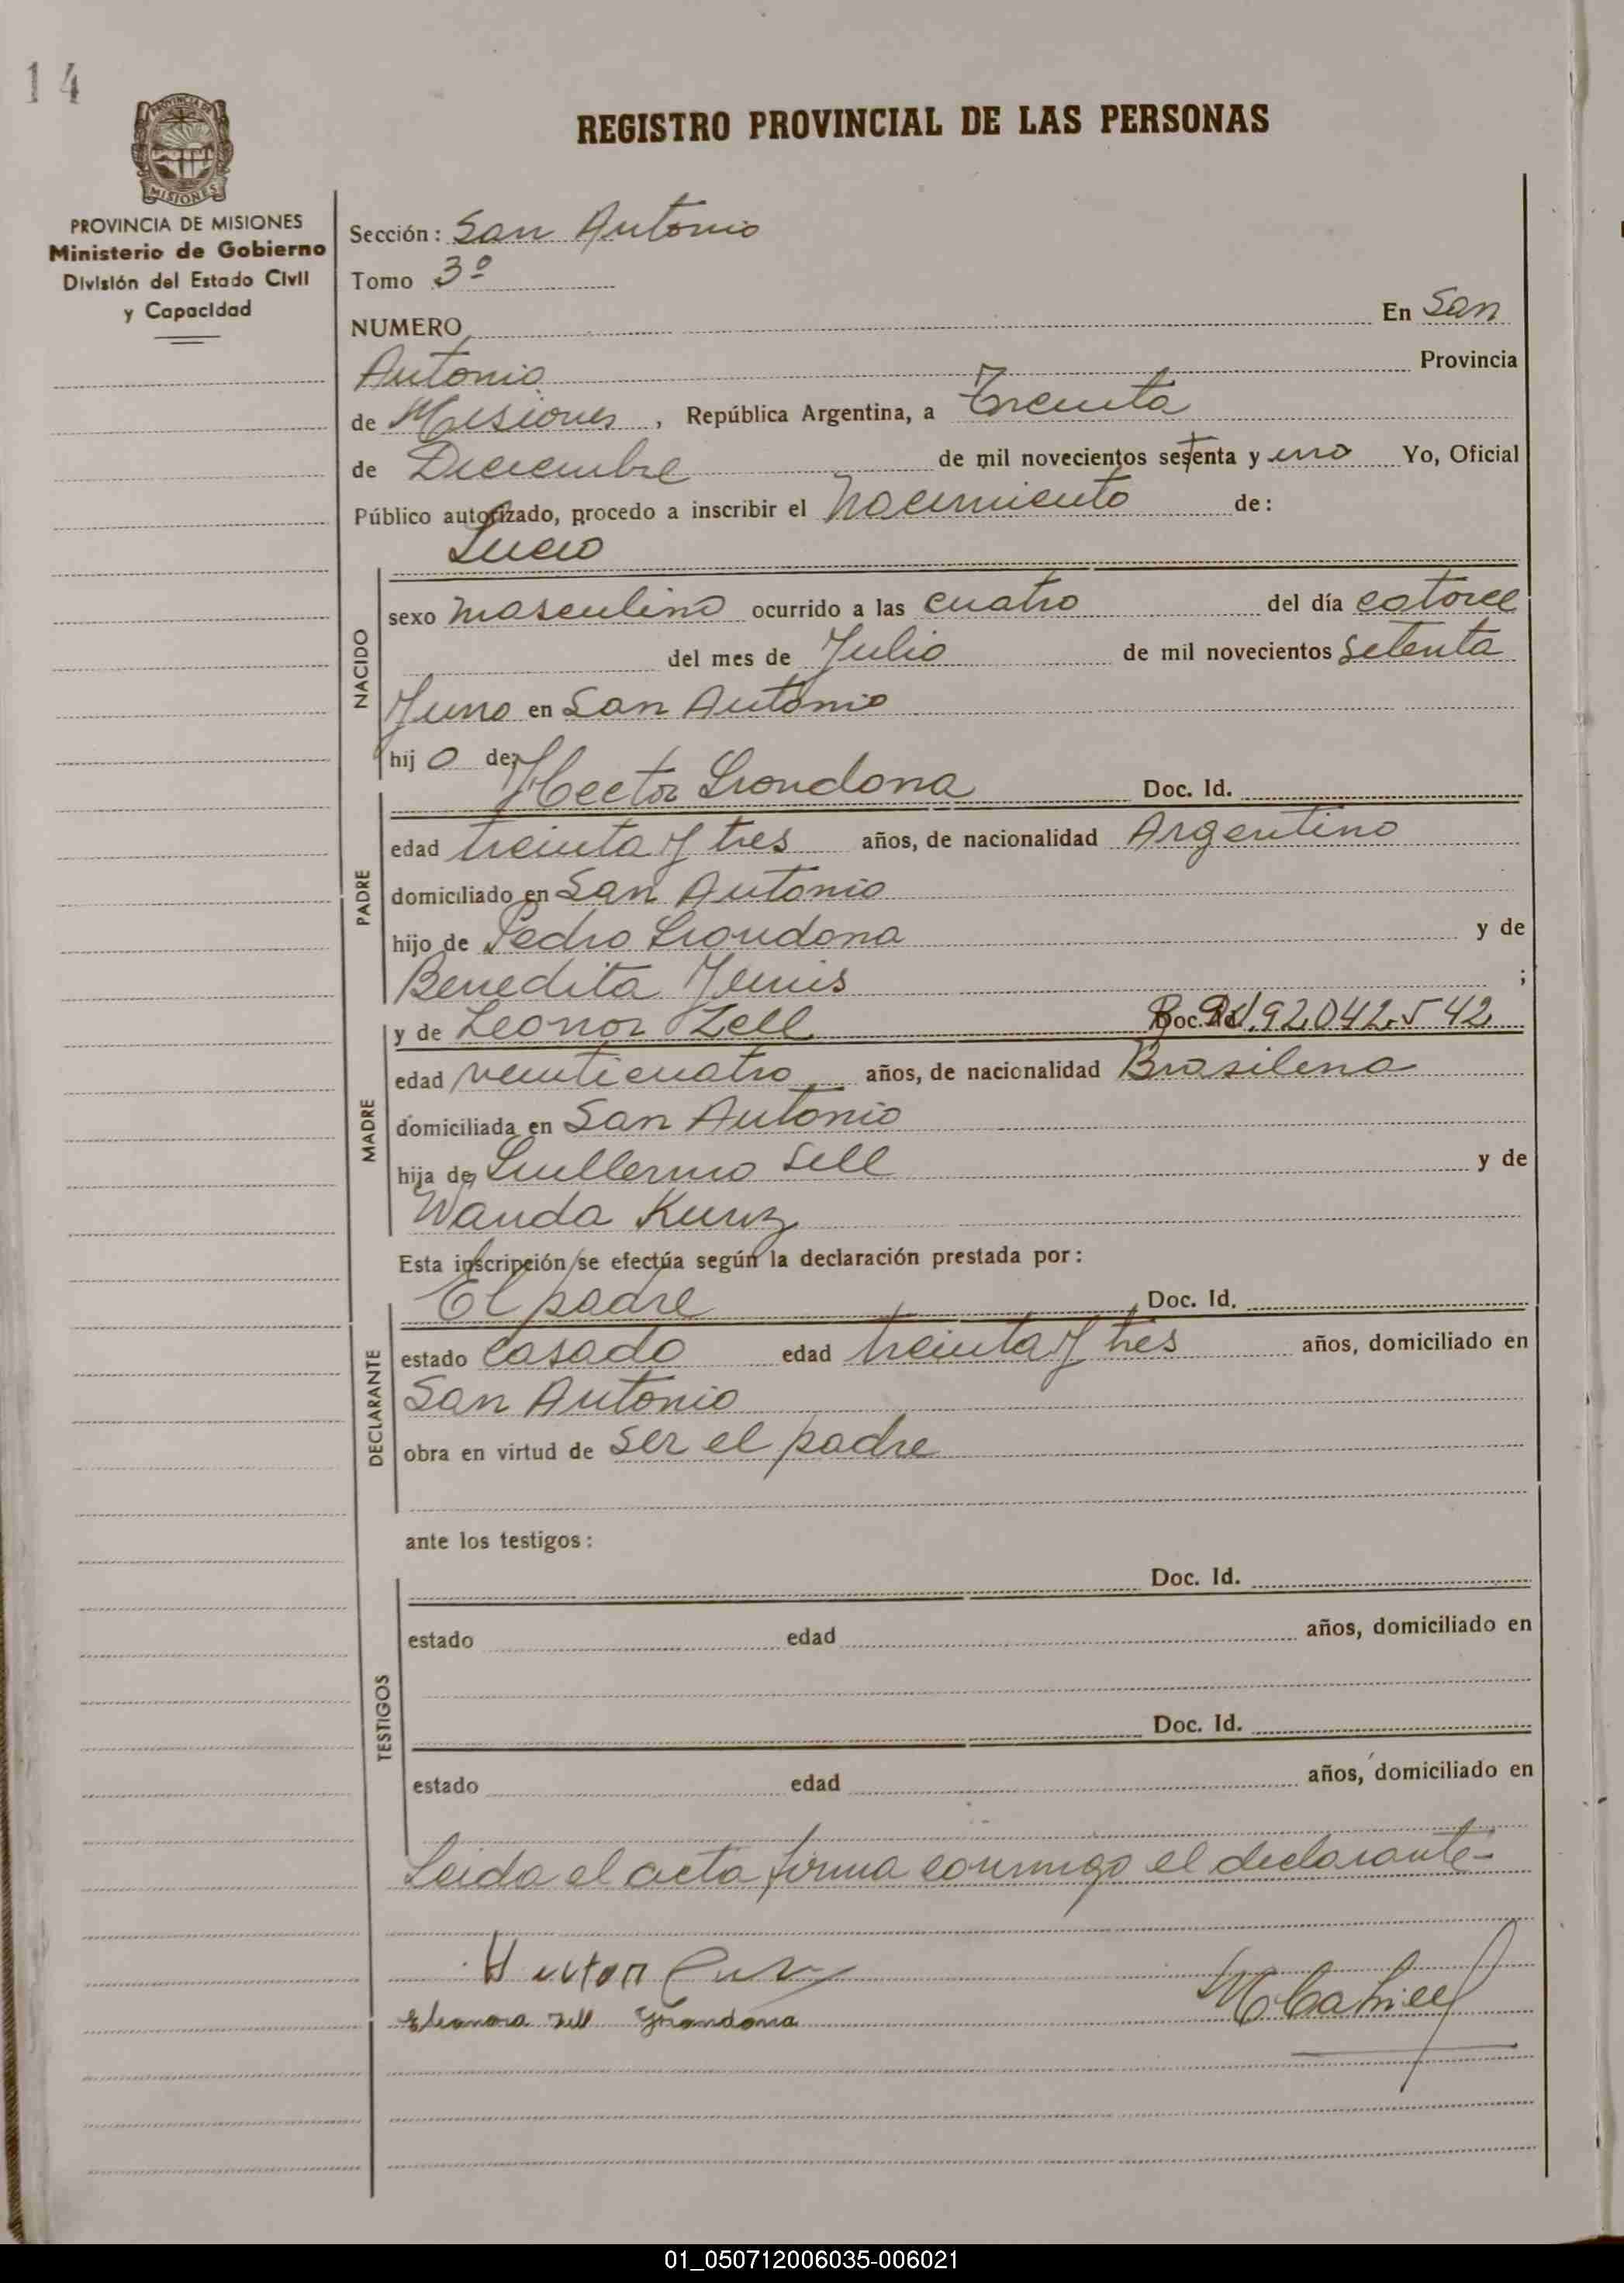 14
PROVINCIA DE
MISIONES
REGISTRO PROVINCIAL DE LAS PERSONAS
PROVINCIA DE MISIONES
Ministerio de Gobierno
División del Estado Civil
y Capacidad
Sección: San Antonio
Tomo 3º
NUMERO En San
Antonio Provincia
de Misiones, República Argentina, a Treinta
de Diciembre de mil novecientos setenta y uno Yo, Oficial
Público autorizado, procedo a inscribir el Nacimiento de:
Lucio
NACIDO
sexo masculino ocurrido a las cuatro del día catorce
del mes de Julio de mil novecientos setenta
y uno en San Antonio
hij o de:
Hector Grondona Doc. Id.
PADRE
edad treinta y tres años, de nacionalidad Argentino
domiciliado en San Antonio
hijo de Pedro Grondona y de
Benedita ;
y de Leonor Zell Doc. Id. 92.042.542
MADRE
edad veinticuatro años, de nacionalidad Brasilena
domiciliada en San Antonio
hija de Guillermo Sell y de
Wanda Kunz
Esta inscripción se efectúa según la declaración prestada por:
El padre Doc. Id.
DECLARANTE
estado casado edad treinta y tres años, domiciliado en
San Antonio
obra en virtud de ser el padre
ante los testigos:
Doc. Id.
TESTIGOS
estado edad años, domiciliado en
Doc. Id.
estado edad años, domiciliado en
Leida el acta firma conmigo el declarante-
Eleanora Zell Grondona
01_050712006035-006021